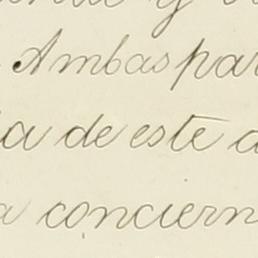 y
Ambas par
a de este a
a conciern